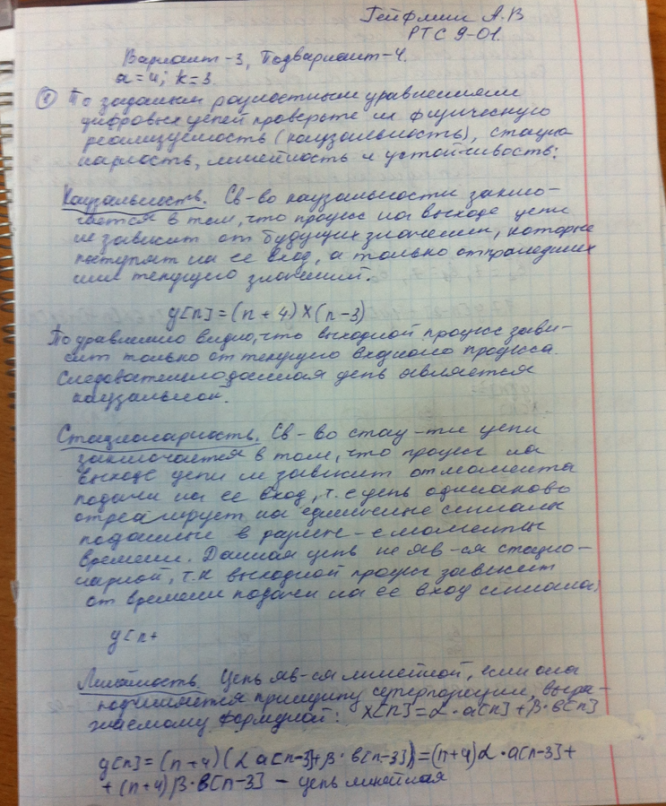 Гейфман А.В
РТС 9-01.
Вариант-3, Подвариант-4.
a=4; k=3
① По заданным разностным уравнениям
цифровых цепей проверьте их физическую
реализуемость (каузальность), стацио
нарность, линейность и устойчивость:
Каузальность. Св-во каузальности заклю-
чается в том, что процесс на выходе цепи
не зависит от будущих значений, которые
поступят на ее вход, а только от прошедших
или текущего значений.
y[n] = (n+4) x(n-3)
По уравнению видно, что выходной процесс зави-
сит только от текущего входного процесса.
Следовательно данная цепь является
каузальной.
Стационарность. Св-во стац-ти цепи
заключается в том, что процесс на
выходе цепи не зависит от момента
подачи на ее вход, т.е цепь одинаково
отреагирует на единичные сигналы
поданные в разные моменты
времени. Данная цепь не яв-ся стацио-
нарной, т.к выходной процесс зависит
от времени подачи на ее вход сигнала,
y[n+
Линейность. Цепь яв-ся линейной, если она
подчиняется принципу суперпозиции, выра-
жаемому формулой: x[n]=α·a[n]+β·b[n]
y[n]=(n+4)(αa[n-3]+β·b[n-3])=(n+4)α·a[n-3]+
+(n+4)β·b[n-3] – цепь линейная